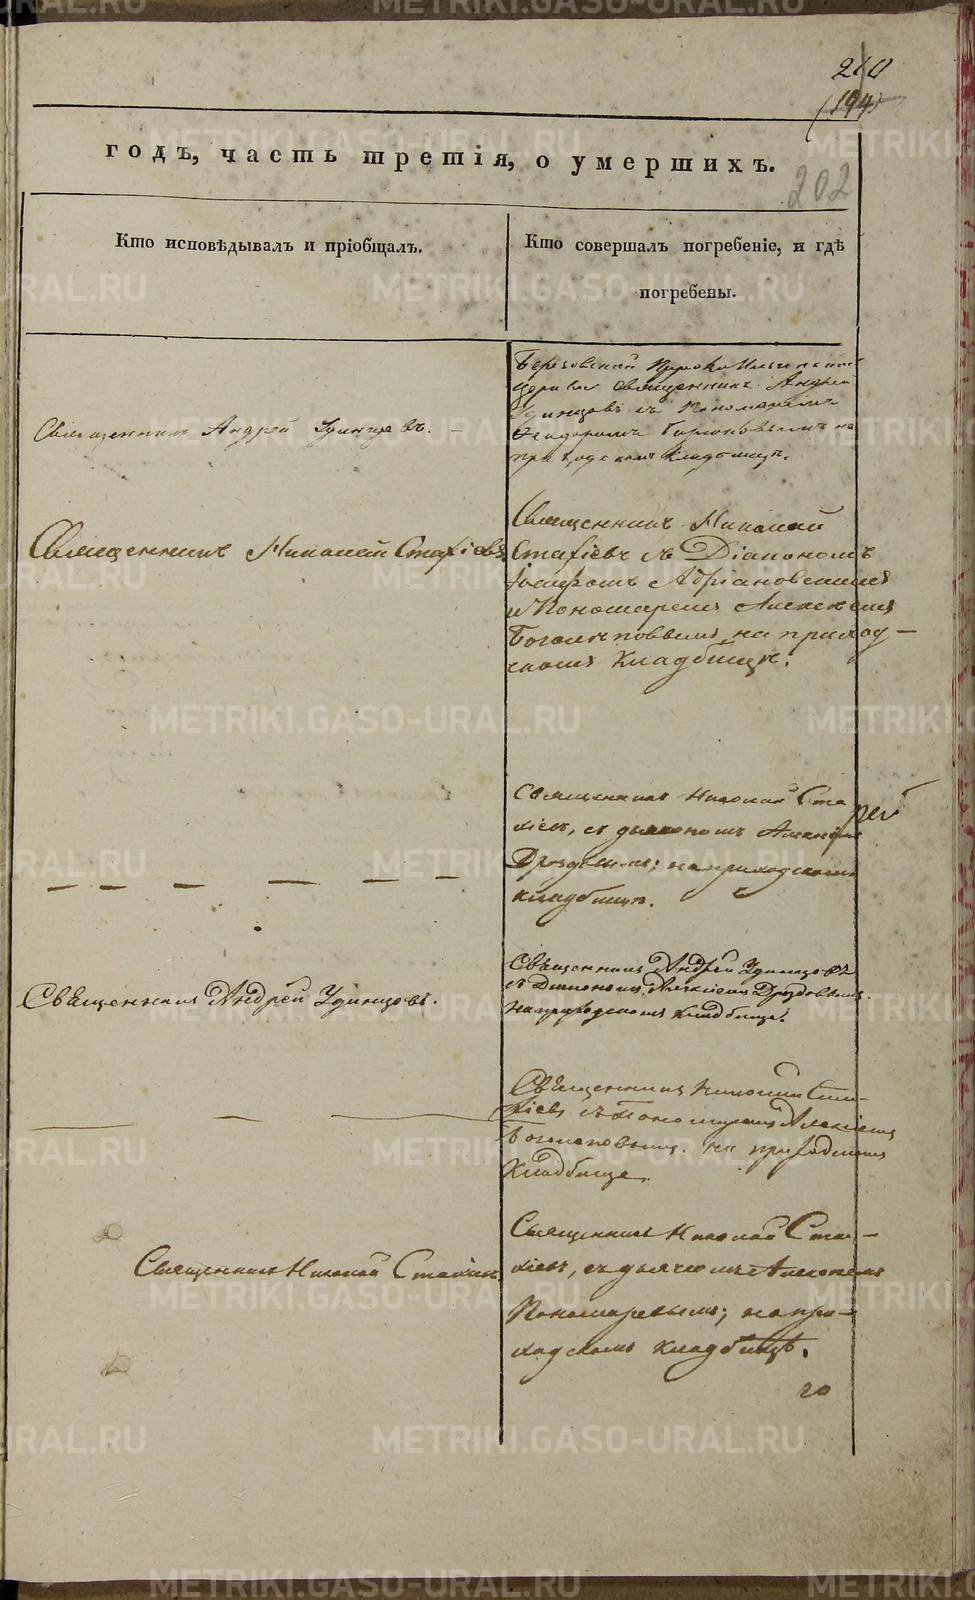 210
(194)
202
годъ, часть третія, о умершихъ.
Кто исповѣдывалъ и пріобщалъ.
Кто совершалъ погребеніе, и гдѣ
погребены.
Священникъ Андрей Удинцевъ.
церкви Священникъ Андрей
Удинцовъ съ Пономаремъ
на
приходскомъ кладбищѣ.
Священникъ Николай Стахіевъ
Священникъ Николай
Стахіевъ съ Діакономъ
Адріановскимъ
и Пономаремъ Алексѣемъ
на приход-
скомъ Кладбищѣ.
Священникъ Николай Ста
хіевъ, съ
Дроздовымъ; на приходскомъ
кладбищѣ.
Священникъ Андрей Удинцовъ.
Священникъ Андрей Удинцовъ
съ Діакономъ Алексіемъ Дроздовымъ
на приходскомъ кладбище.
Священникъ Николай Ста-
хіевъ съ Пономаремъ Алексіемъ
на приходскомъ
Кладбище.
Священникъ Николай Стахіевъ
Священникъ Николай Ста-
хіевъ, съ дьячкомъ Алексѣемъ
Пономаревымъ; на при-
ходскомъ кладбищѣ.
20
METRIKI.GASO-URAL.RU